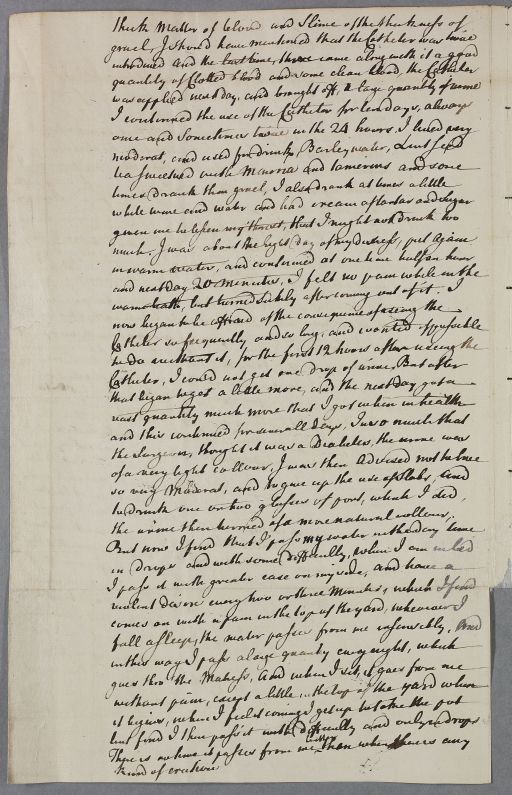 thick Matter of blood and Slime of the thickness of
gruel, I should have mentioned that the Catheter was twice
introduced and the last time, there came along with it a good
quantity of Clotted blood and some clean blood, the Catheter
was applied next day, and brought off, a large quantity of urine
I continued the use of the Catheter for ten days, always
once and Sometimes twice in the 24 hours. I lived very
moderat, and used for drink, Barley water, Lint seed
tea sweetned with Manna and tamerins and some
times drank thin gruel, I also drank at times a little
white wine and water and had cream of tartar and Sugar
given me to lessen my thirst, that I might not drink too
much. I was about the eight day of my distress, put again
in warm water, and continued at one time half an hour
and next day 20 minutes, I felt no pain while in the
warm bath, but turned sickly after coming out of it. I
now began to be affraid of the consequence of useing the
Catheter so frequently and so long, and wanted if possible
to do without it, for the first 12 hours after useing the
Catheter, I could not get one drop of urine, But after
that began to get a little more, and the next day got a
vast quantity much more that I got when in health
and this continued for severall days, In so much that
the Surgeon, thought it was a Diabetes, the urine was
of a very light collour, I was then Advised not to live
so very Moderat, and to give up the use of Slabs, and
to drink one or two glasses of port, which I did,
the urine then turned of a more natural collour,
But now I find that I pass my water in the day time
in drops and with some difficulty, when I am in bed
I pass it with greater ease on my side, and have a
violent desire every two or three Minutes, which I find
comes on with a pain in the top of the yard, whenever I
fall asleep, the water passes from me insensibly, and
in this way I pass a large quanty every night, which
goes thro' the Mattress, and when I sit, it goes from me
without pain, except a little, in the top of the yard when
it begins, when I feel it coming I get up to take the pot
but find I then pass it with difficulty and only in drops
There is no time it passes from me when there is any
kind of erection